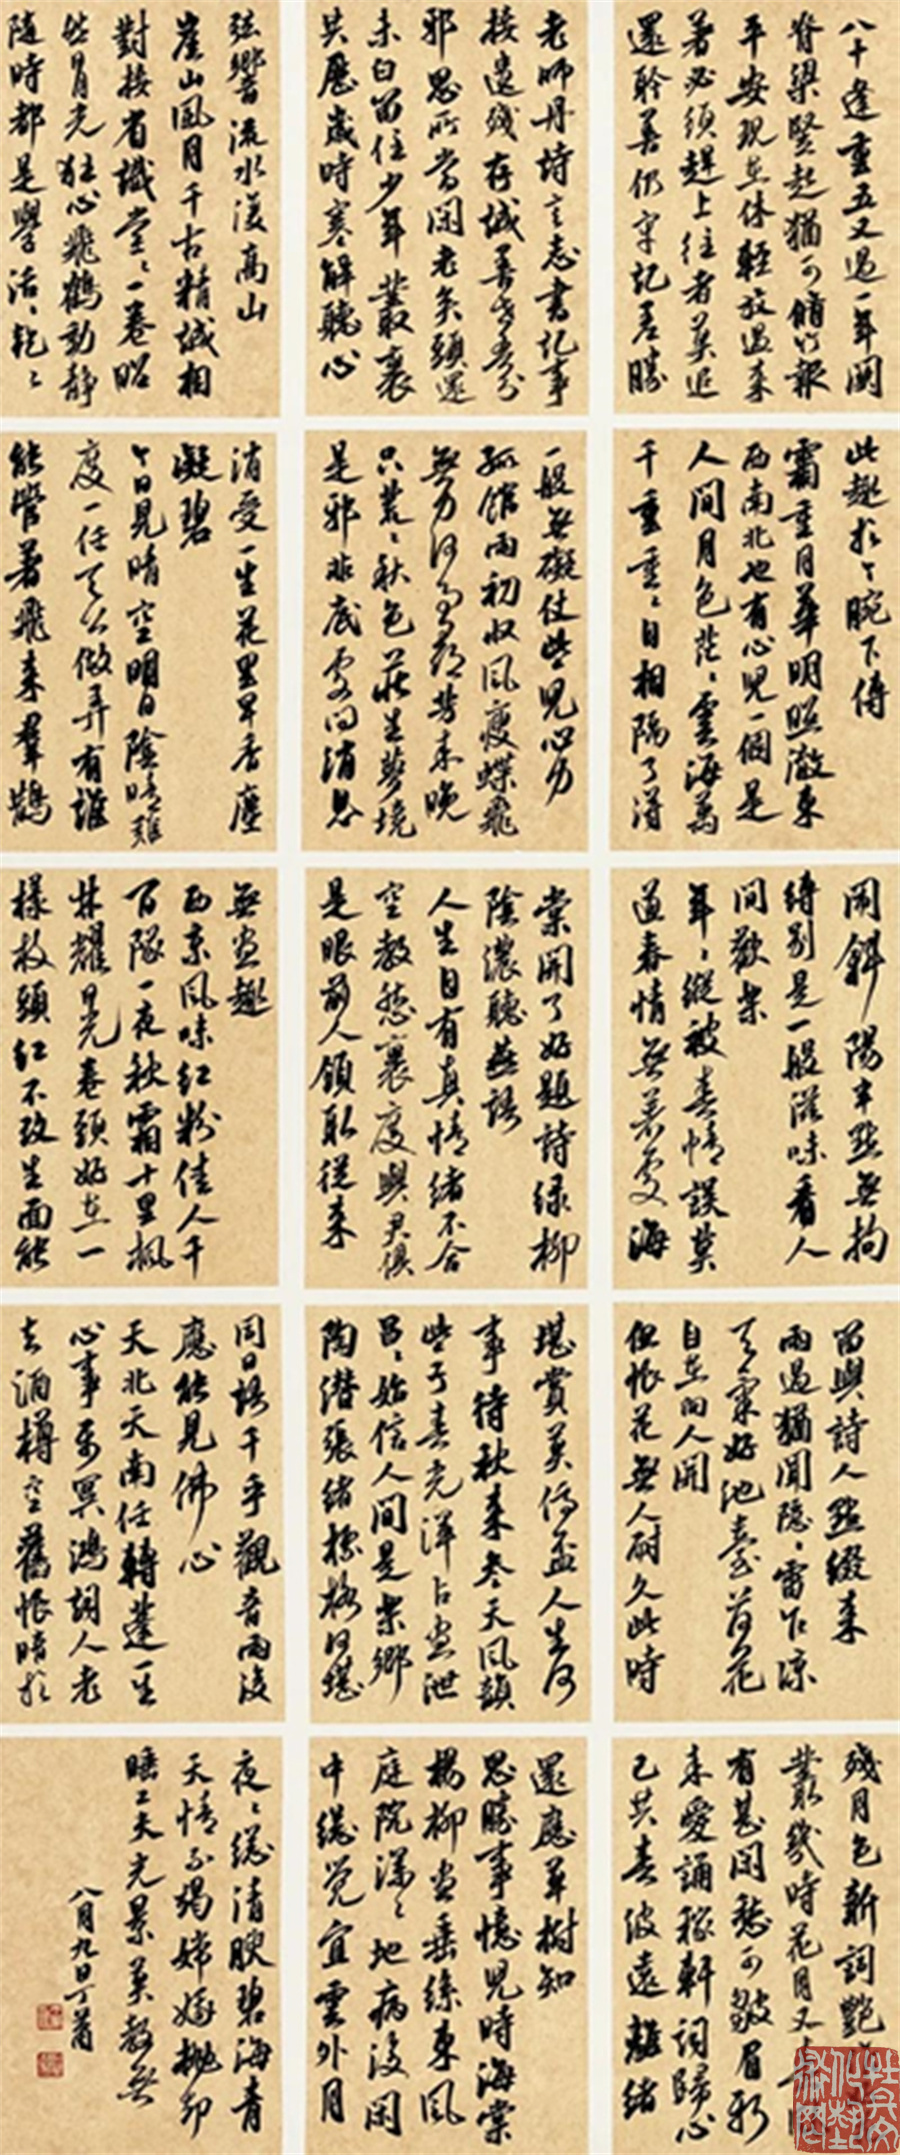 八十逢重五又過一年闌
脊梁豎起猶可脩竹報
平安現在休輕放過來
者必須趕上往者莫追
還聆善仍牢記勝
老師丹詩言志書記事
接遺殘存誠
邪思所當閑老矣頭還
未白留住少年叢裏
共歷歲時寒解聽心
弦響流水漫高山
崖山風月千古精誠相
對接省識堂堂一卷昭
然狂心飛鶴動靜
隨時都是學活活乾乾
此趣於今腕下傳
霜重月華明照澈東
西南北也有心兒一個是
人間月色茫茫雲海萬
千重重重自相隔了得
一般無礙仗些兒心力
孤館雨初收風瘦蝶飛
無力何事尋芳來晚
只茫茫秋色莊生夢境
是邪非底處問消息
消受一生花里早香塵
凝碧
今日見晴空明日陰晴難
度一任天公做弄有誰
能管著飛來群鵲
鬧斜陽半點無拘
縛別是一般滋味看人
間歡樂
年年縱被春情誤莫
道春情無著處海
棠開了好題詩綠柳
陰濃聽燕語
人生自有真情緒不合
空教愁裏度與君俱
是眼前人領取從來
無盡趣
西京風味紅粉佳人千
百隊一夜秋霜十里楓
林耀日光卷頭好在一
樣枝頭紅不改生面能
留與詩人點綴來
雨過猶聞隱隱雷乍涼
天氣好池臺荷花
自在向人開
但恨花無人耐久此時
堪賞莫停盃人生何
事待秋來參天風韻
些子春光渾占盡泄
始信人間是樂鄉
陶潛張緒標格何堪
同日語千手觀音雨後
應能見佛心
天北天南任轉蓬一生
心事系冥鴻詞人老
去酒樽空舊恨暗於
殘月色新詞艷
叢幾時花月又
有甚閑愁可皺眉
來愛誦稼軒詞歸心
已共春波遠離緒
還應草樹知
思勝事憶兒時海棠
楊柳盡垂絲東風
庭院深深地病後閑
中總覺宜雲外月
夜夜總清腴碧海青
天情不竭嫦娥拋卻
睡工夫光景莫教無
八月九日